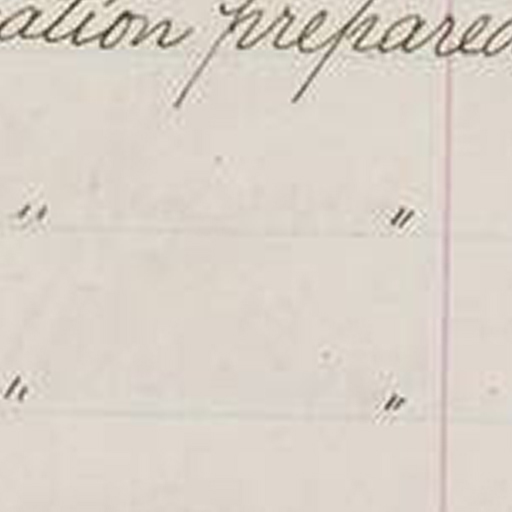 ation prepared
" "
" "